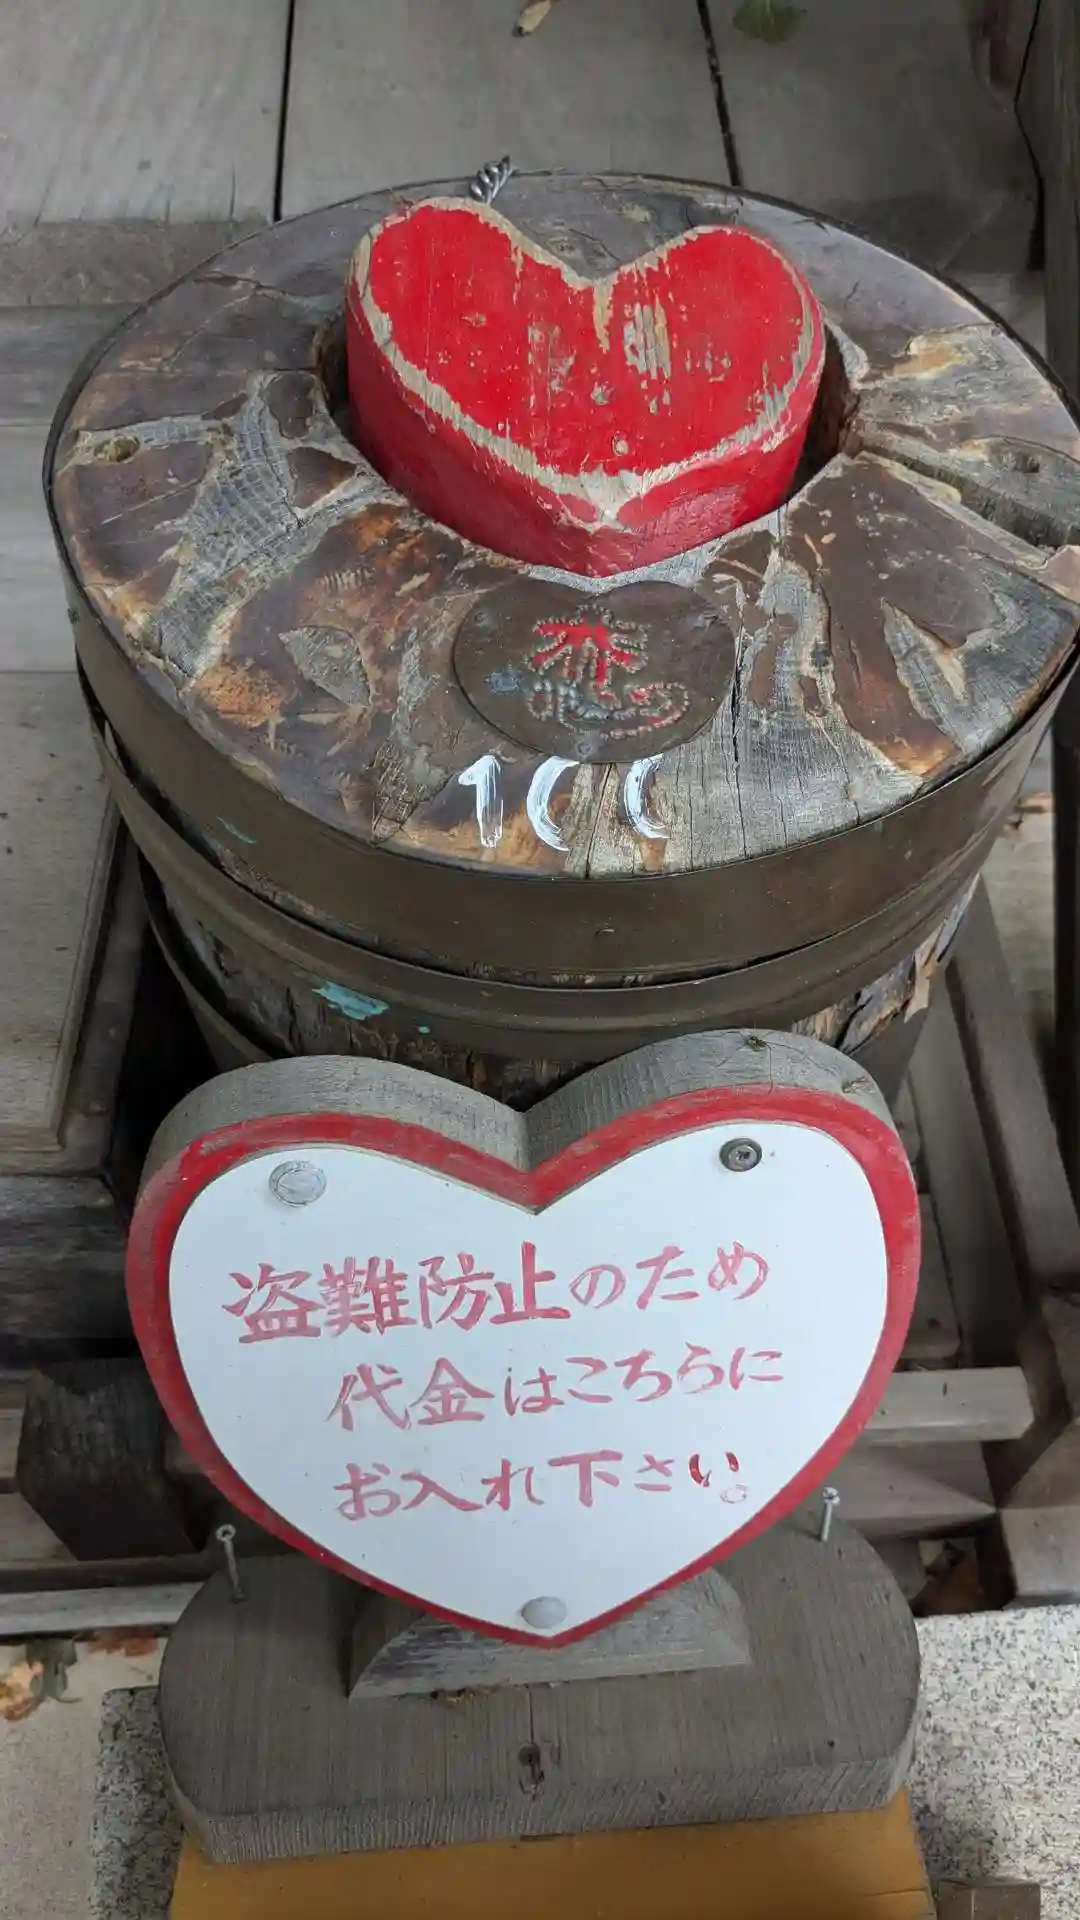 恋
100
盗難防止のため
代金はこちらに
お入れ下さい。